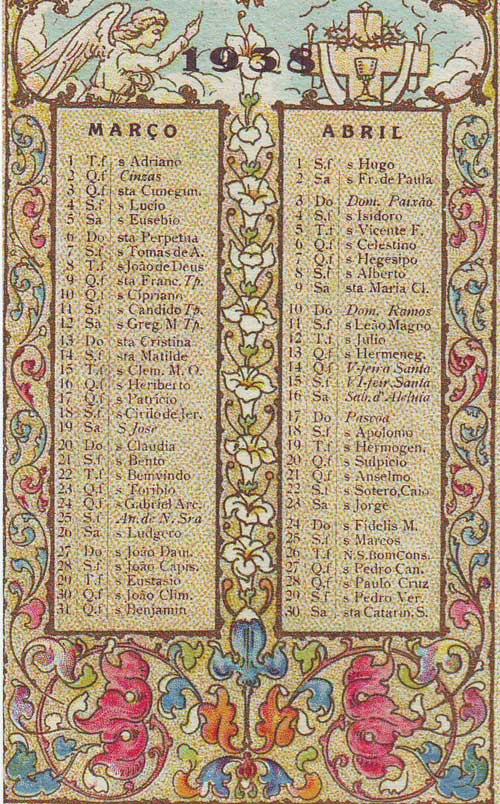 1938
MARÇO
1 T.f s Adriano
2 Q.f Cinzas
3 Q.f sta Cunegun.
4 S.f s Lucio
5 Sa s Eusebio
6 Do sta Perpetua
7 S.f s Tomas de A.
8 T.f s João de Deus
9 Q.f sta Franc. Tp.
10 Q.f s Cipriano
11 S.f s Candido Tp.
12 Sa s Greg. M Tp.
13 Do sta Cristina
14 S.f sta Matilde
15 T.f s Clem. M. O.
16 Q.f s Heriberto
17 Q.f s Patricio
18 S.f s Cirilo de Jer.
19 Sa S José
20 Do s Claudia
21 S.f s Bento
22 T.f s Bemvindo
23 Q.f s Toribio
24 Q.f s Gabriel Arc.
25 S.f An. de N. Sra
26 Sa s Ludgero
27 Do s João Dam.
28 S.f s João Capis.
29 T.f s Eustasio
30 Q.f s João Clim.
31 Q.f s Benjamin
ABRIL
1 S.f s Hugo
2 Sa s Fr. de Paula
3 Do Dom. Paixão
4 S.f s Isidoro
5 T.f s Vicente F.
6 Q.f s Celestino
7 Q.f s Hegesipo
8 S.f s Alberto
9 Sa sta Maria Cl.
10 Do Dom. Ramos
11 S.f s Leão Magno
12 T.f s Julio
13 Q.f s Hermeneg.
14 Q.f V-feira Santa
15 S.f VI-feir. Santa
16 Sa Sab. d'Aleluia
17 Do Pascoa
18 S.f s Apolonio
19 T.f s Hermogen.
20 Q.f s Sulpicio
21 Q.f s Anselmo
22 S.f s Sotero, Caio
23 Sa s Jorge
24 Do s Fidelis M.
25 S.f s Marcos
26 T.f N.S. Bom Cons.
27 Q.f s Pedro Can.
28 Q.f s Paulo Cruz
29 S.f s Pedro Ver.
30 Sa sta Catarin. S.